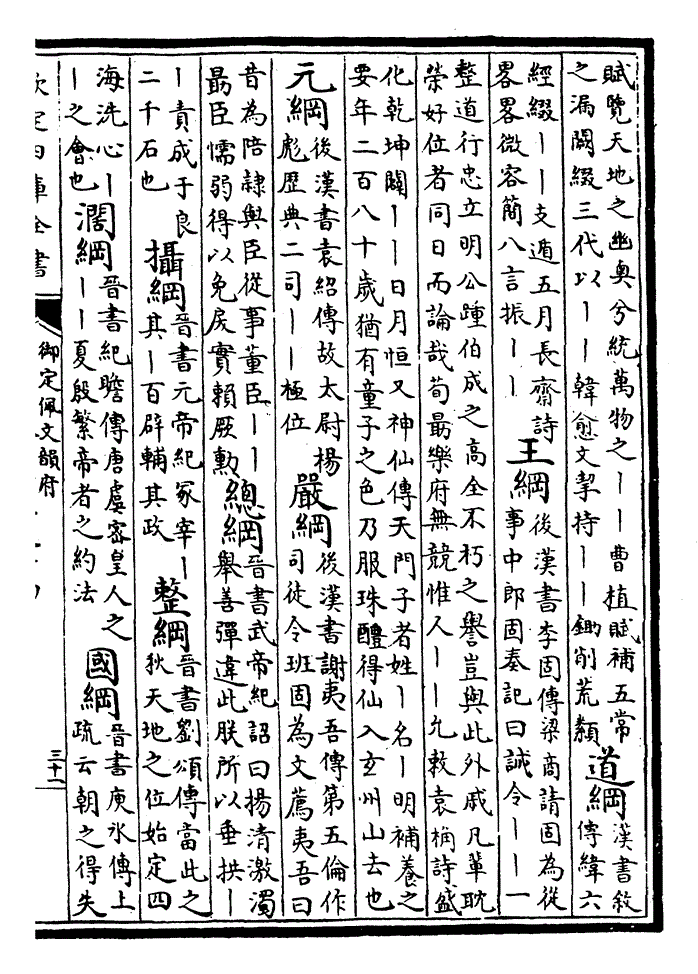 賦覽天地之幽奥兮統萬物之丨丨曹植賦補五常
之漏闕綴三代以丨丨韓愈文挈持丨丨鋤削荒纇
道綱
漢書敘
傳緯六
經綴丨丨支遁五月長齋詩
畧畧微容簡八言振丨丨
王綱
後漢書李固傳梁商請固為從
事中郎固奏記曰誠令丨丨一
整道行忠立明公踵伯成之高全不朽之譽豈與此外戚凡輩耽
榮好位者同日而論哉荀勗樂府無競惟人丨丨允敕袁桷詩盛
化乾坤闢丨丨日月恒又神仙傳天門子者姓丨名丨明補養之
要年二百八十歲猶有童子之色乃服珠醴得仙入玄州山去也
元綱
後漢書袁紹傳故太尉楊
彪歷典二司丨丨極位
嚴綱
後漢書謝夷吾傳第五倫作
司徒令班固為文薦夷吾曰
昔為陪隷與臣從事董臣丨丨
勗臣懦弱得以免戾實賴厥勲
總綱
晉書武帝紀詔曰揚清激濁
舉善彈違此朕所以垂拱丨
丨責成于良
二千石也
攝綱
晉書元帝紀冢宰丨
其丨百辟輔其政
整綱
晉書劉頌傳當此之
秋天地之位始定四
海洗心丨
丨之會也
濶綱
晉書紀瞻傳唐虞密皇人之
丨丨夏殷繁帝者之約法
國綱
晉書庾冰傳上
疏云朝之得失
欽定四庫全書
御定佩文韻府
三十一